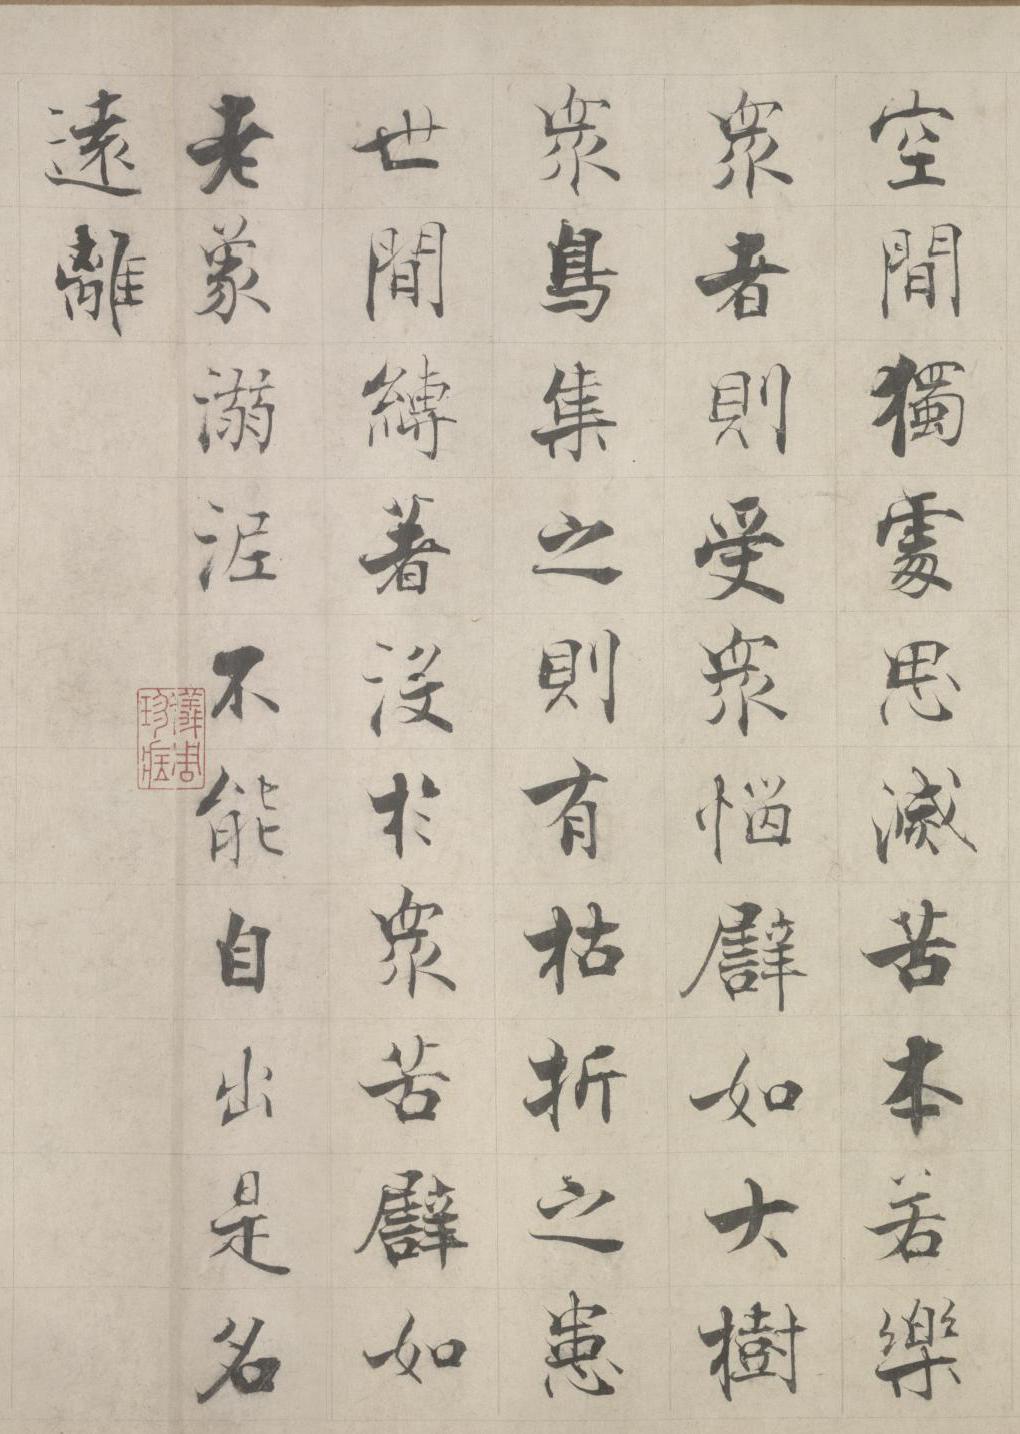 空間獨處思滅苦本若樂
衆者則受衆惱譬如大樹
衆鳥集之則有枯折之患
世間縛著沒於衆苦譬如
老象溺泥不能自出是名
遠離